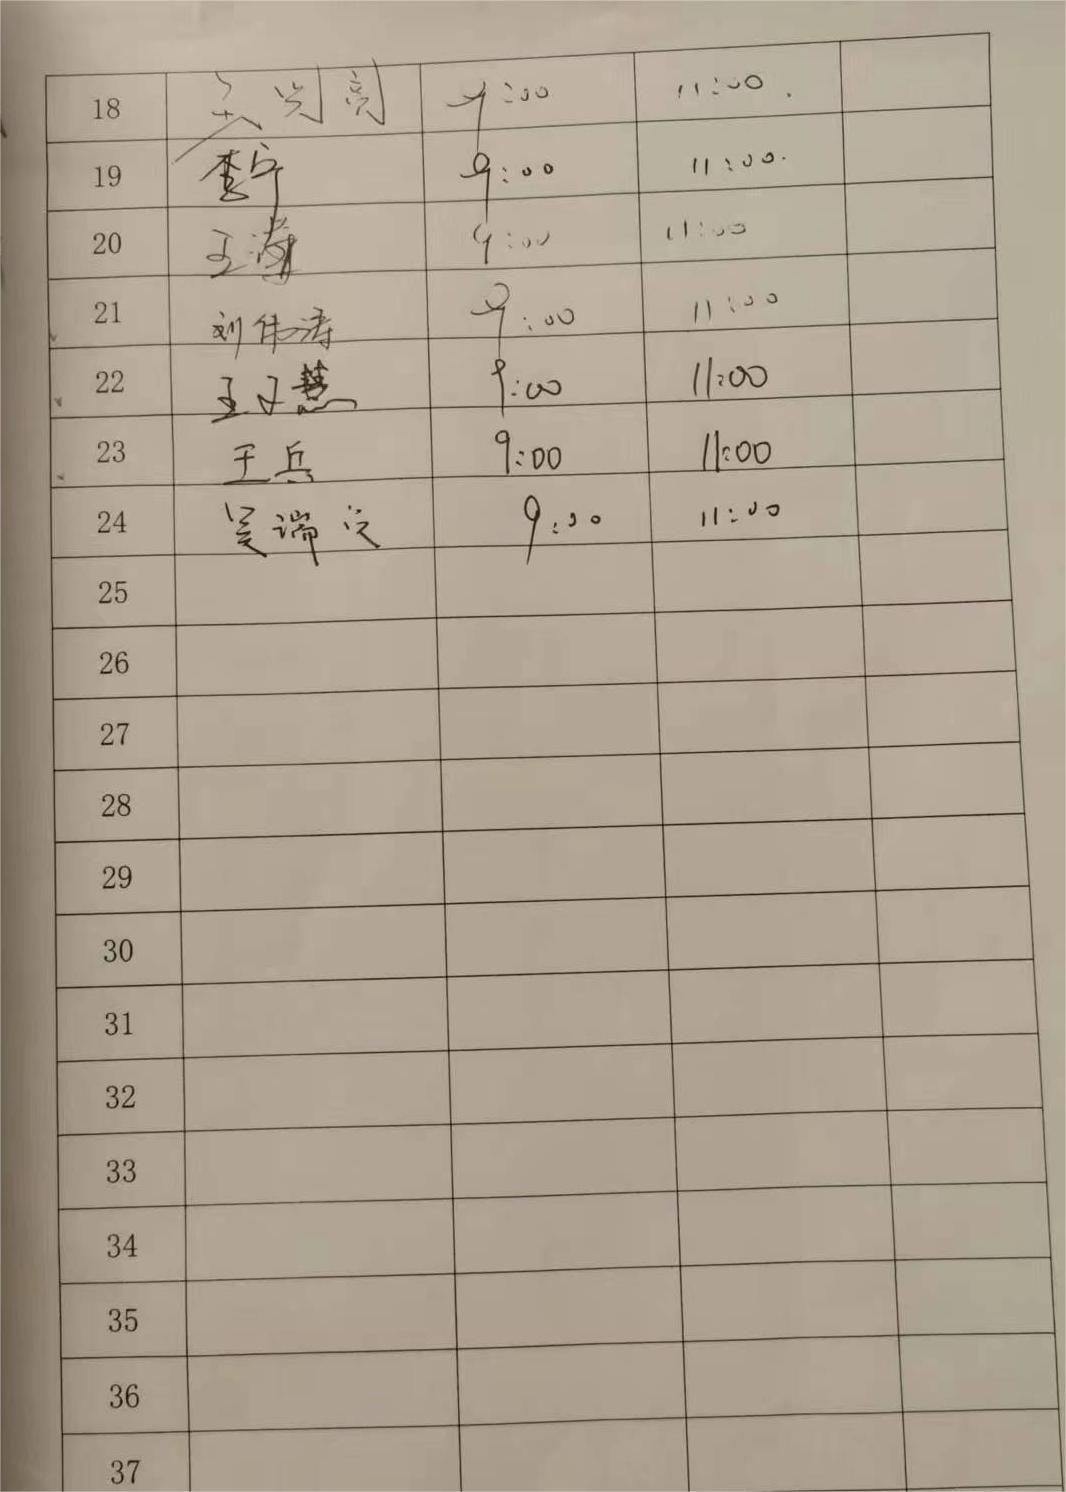 18 9:00 11:00.
19 李宁 9:00 11:00.
20 王海 9:00 11:00
21 刘伟涛 9:00 11:00
22 王子慧 9:00 11:00
23 王兵 9:00 11:00
24 吴端 9:00 11:00
25
26
27
28
29
30
31
32
33
34
35
36
37